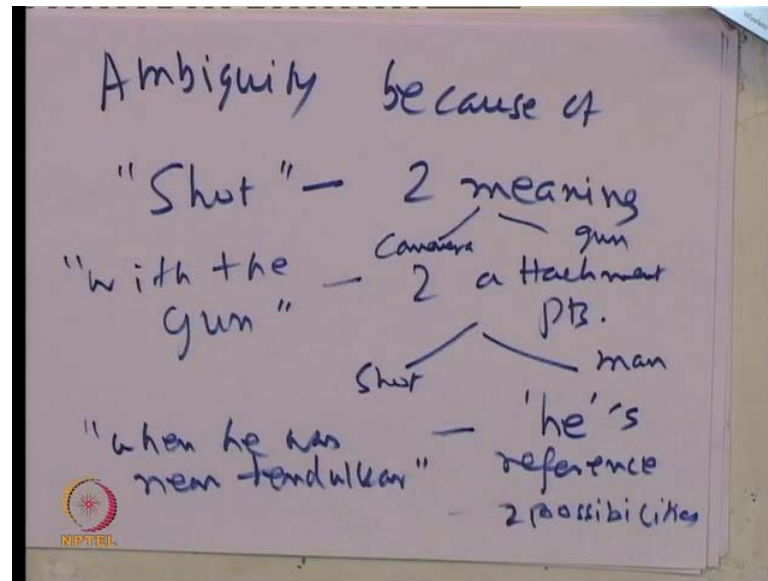 Ambiguity because of
"Shot" - 2 meaning
Camera gun
"with the gun" - 2 attachment pts.
Shot man
"when he was near tendulkar" - 'he's reference
- 2 possibilities
NPTEL